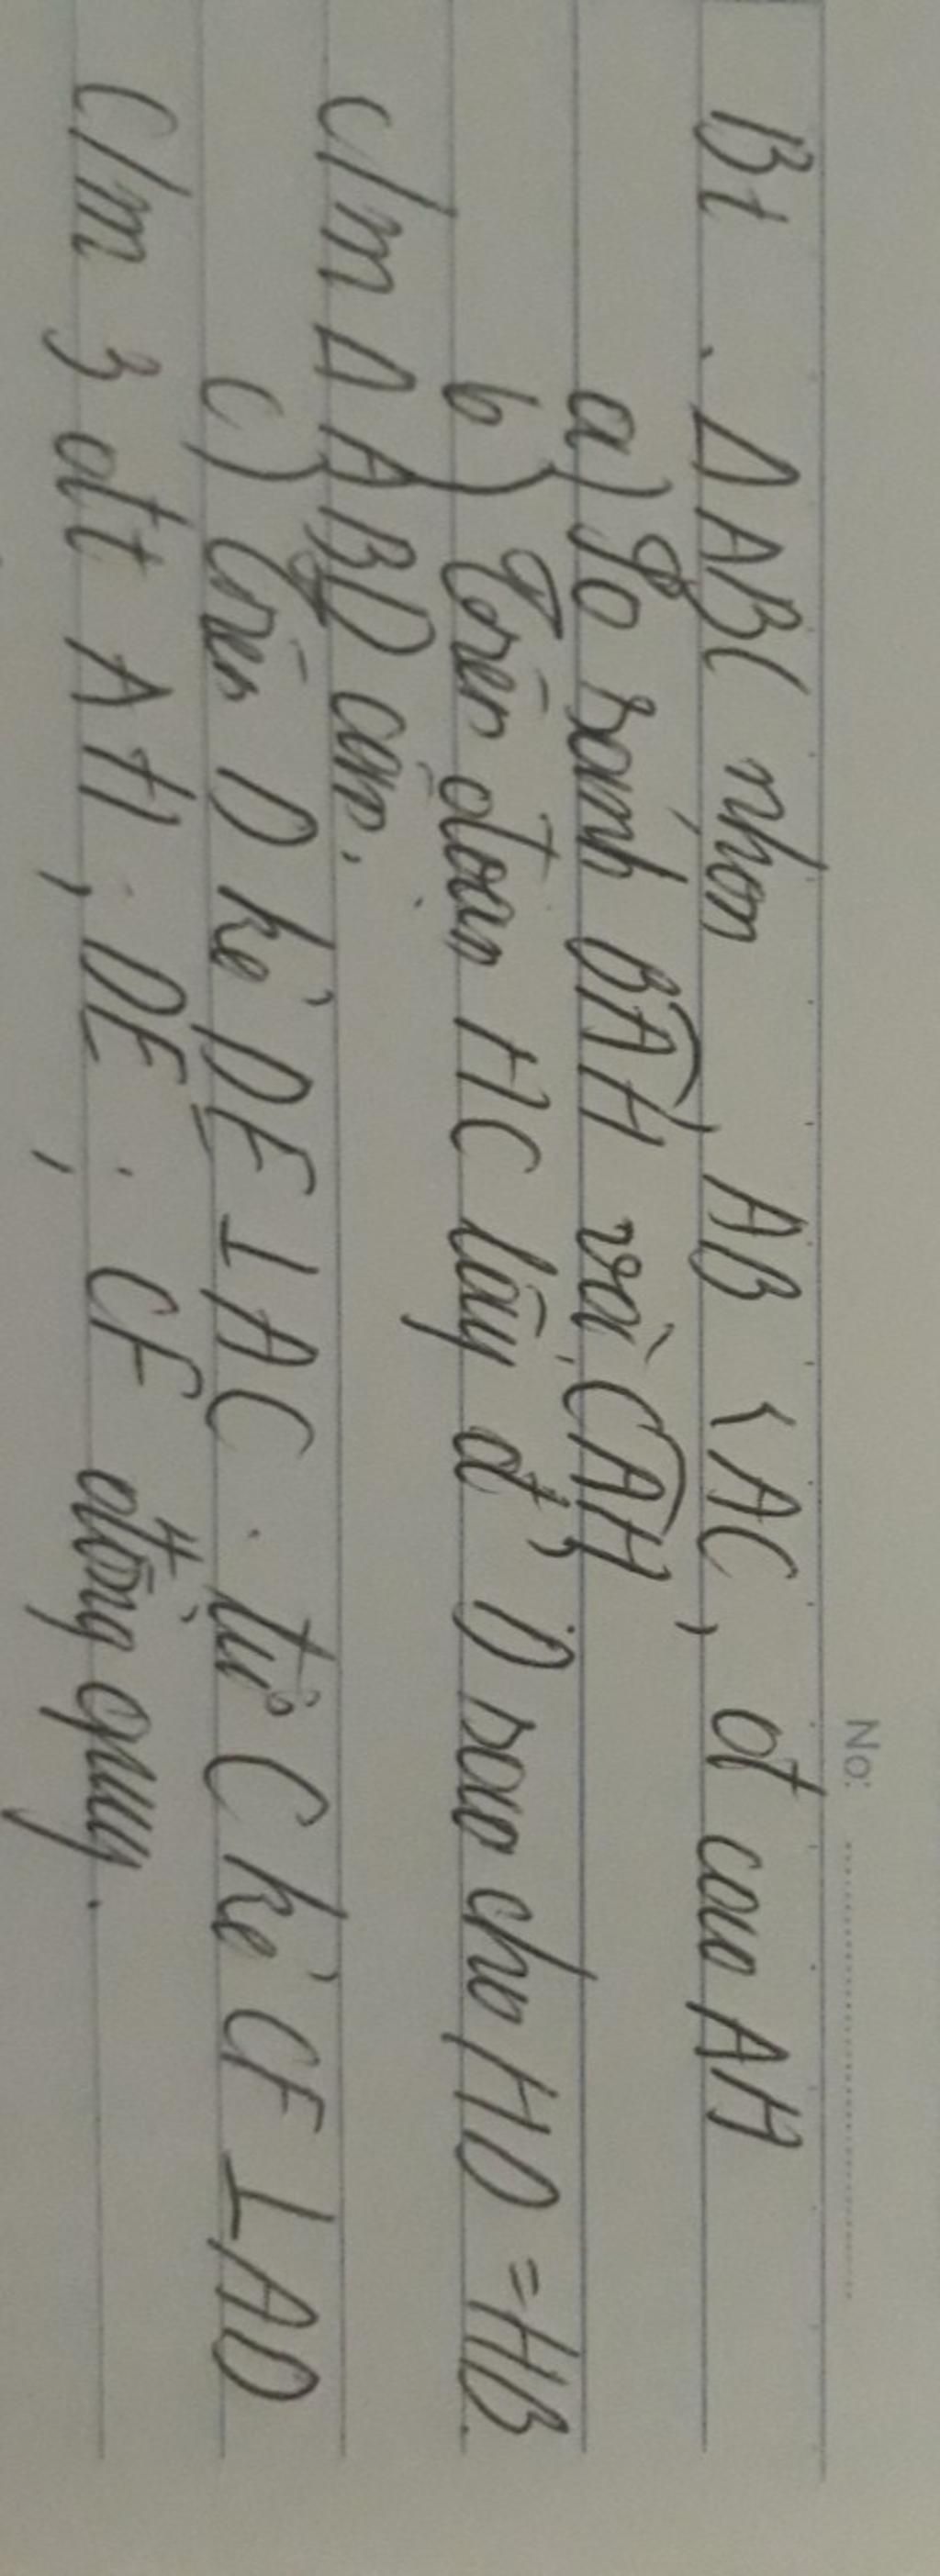 No:
Bt. Δ ABC nhọn, AB < AC, đt cao AH
a) So sánh BAH và CAH
b) Trên đoạn HC lấy đ' D sao cho HD = HB.
c/m Δ ABD cân.
c) trên D kẻ DE ⊥ AC. từ C kẻ CF ⊥ AD
C/m 3 đt AH, DE, CF đồng quy.